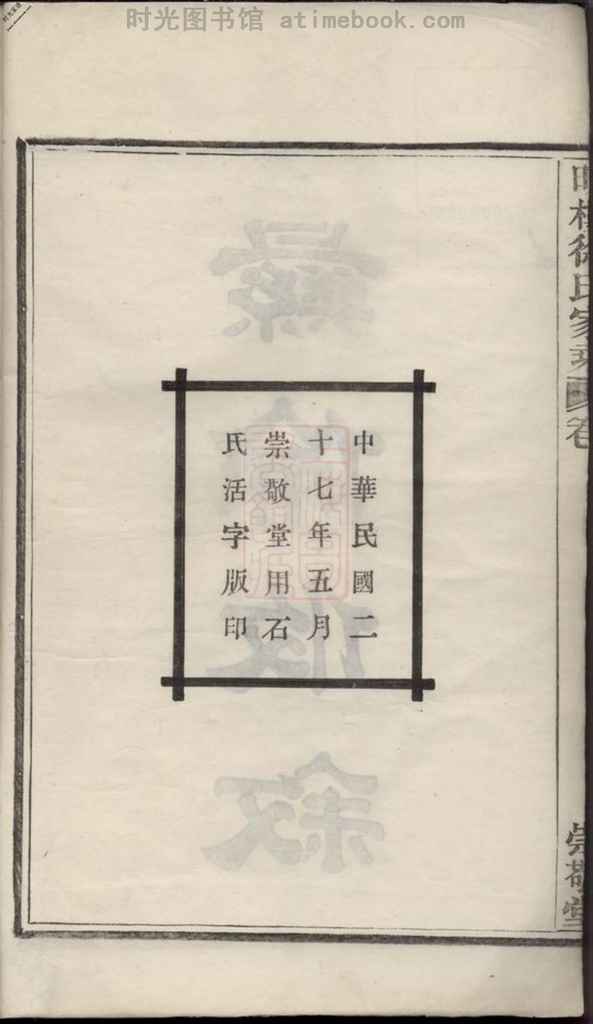 时光图书馆 atimebook.com
中華民國二
十七年五月
崇敬堂用石
氏活字版印
徐氏家
卷
崇敬堂